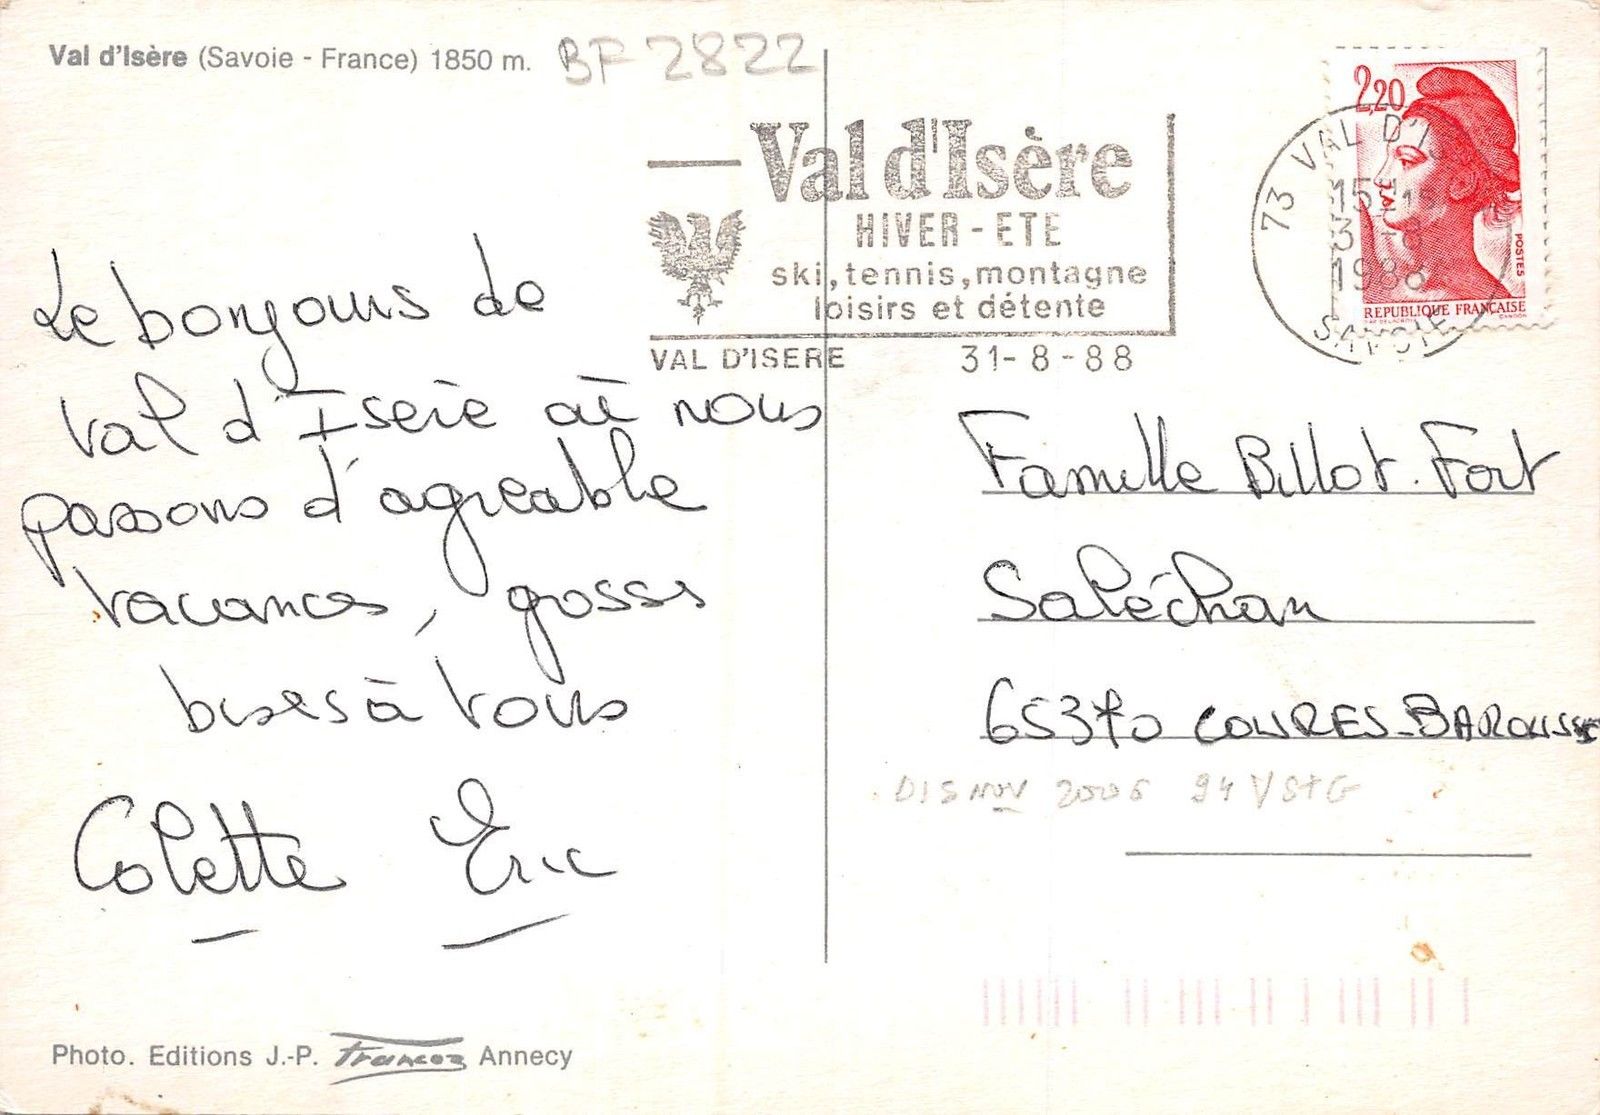 Val d'Isère (Savoie - France) 1850 m.
BF 2822
Val d'Isère
HIVER - ETE
ski, tennis, montagne
loisirs et détente
VAL D'ISERE 31-8-88
2,20
POSTES
REPUBLIQUE FRANÇAISE
73 VAL D'I
15H
1988
SAVOIE
Le bonjours de
Val d'Isère où nous
passons d'agreable
vacances, grosses
bises à vous
Colette Eric
Famille Billot. Fort
Saléchan
65370 LOURES-BAROUSSE
DIS NOV 2006 94 VSTG
Photo. Editions J.-P. Francoz Annecy